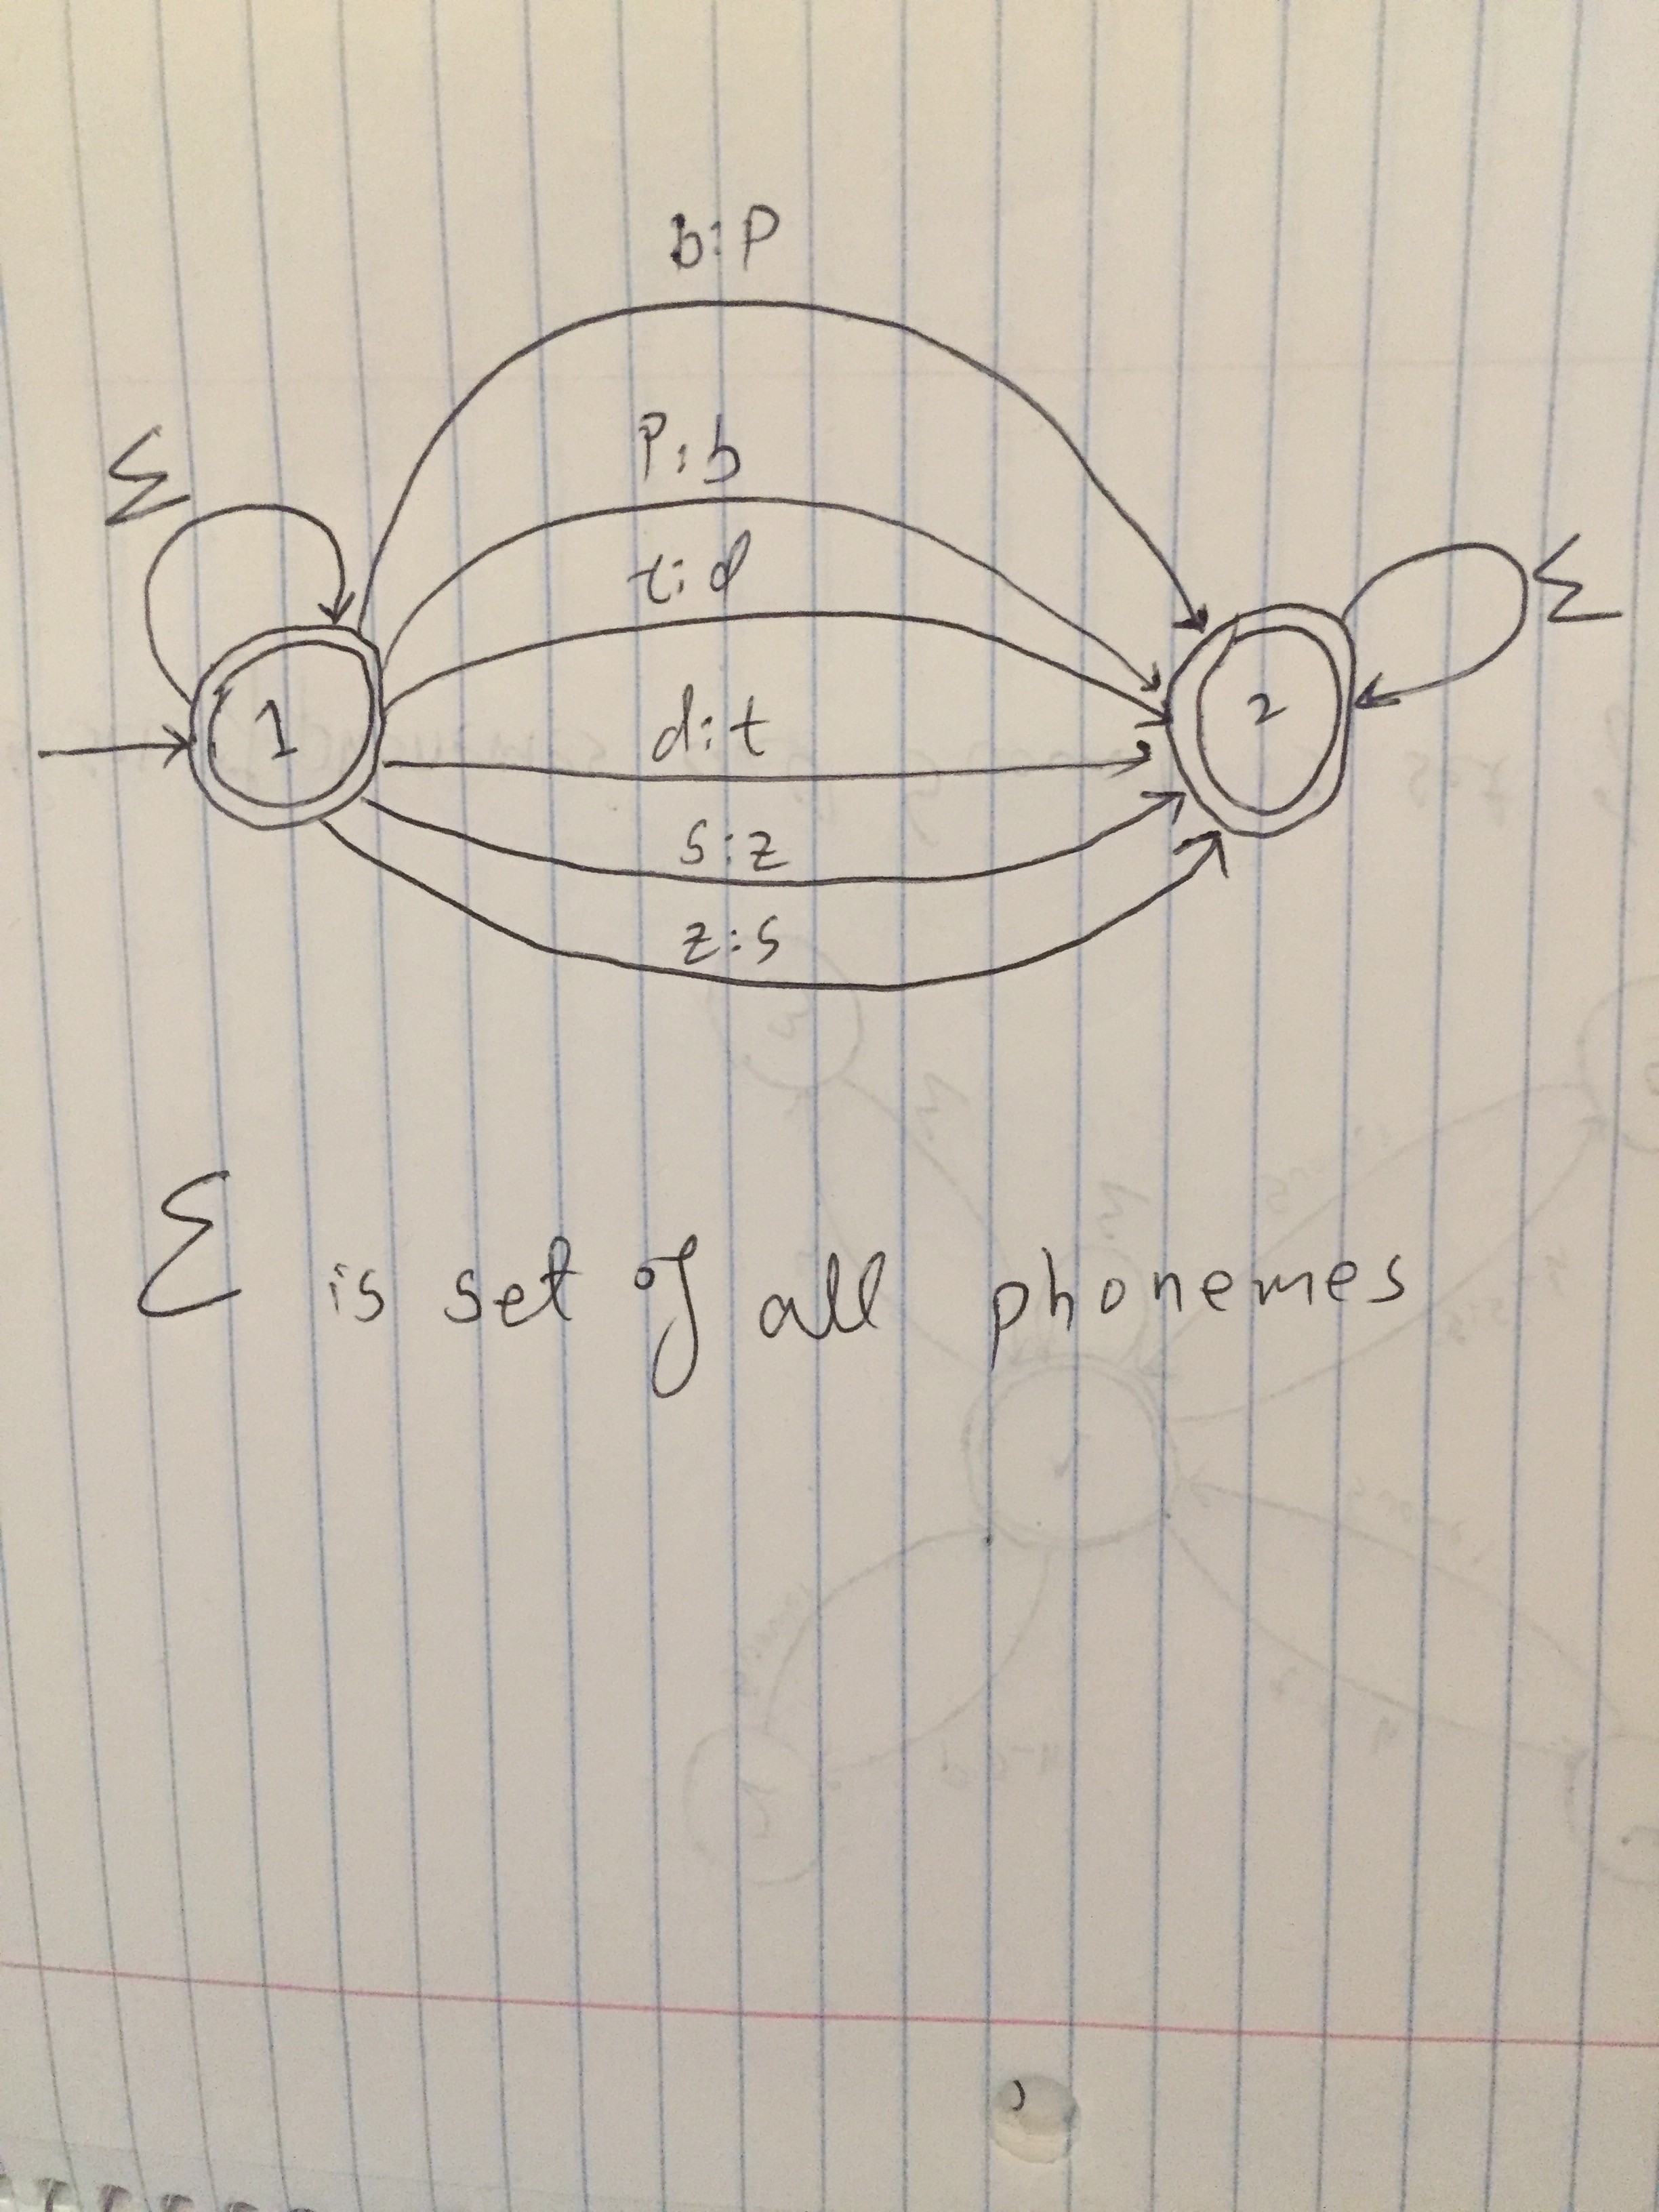 b:p
p:b
Σ
t:d
Σ
1
2
d:t
s:z
z:s
Σ is set of all phonemes